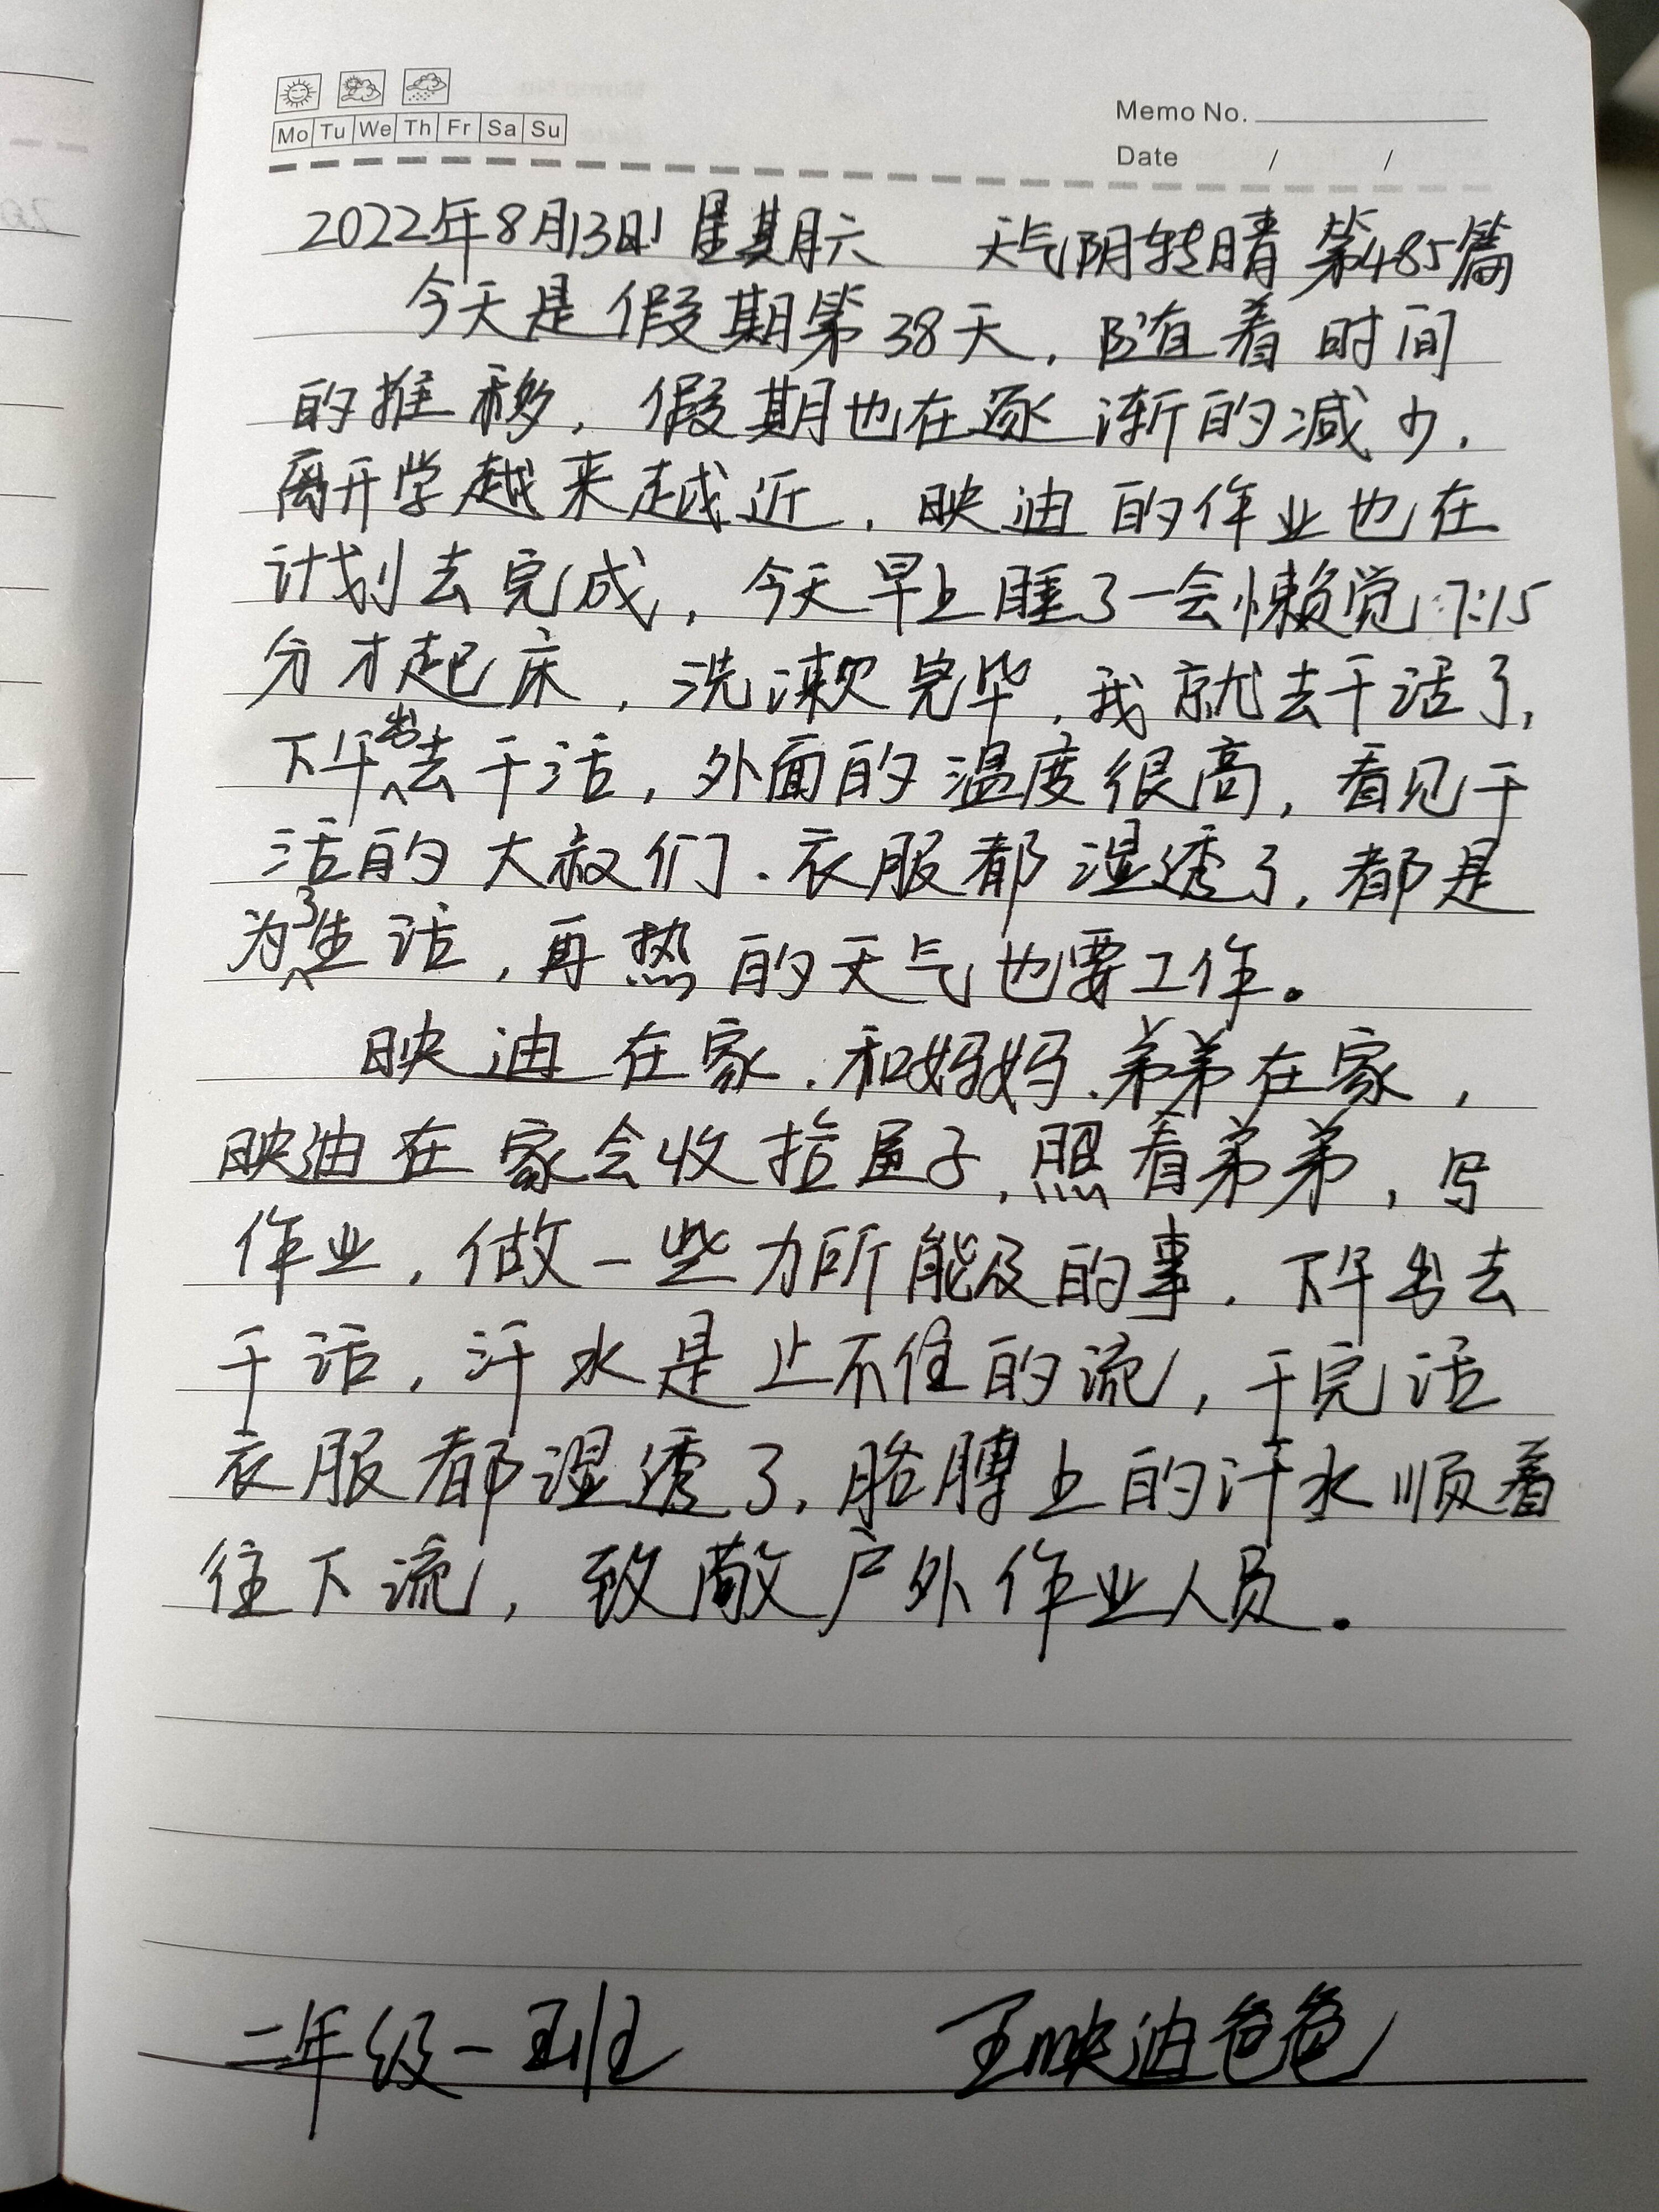 Mo Tu We Th Fr Sa Su
Memo No.
Date / /
2022年8月13日 星期六 天气阴转晴 第485篇
今天是假期第38天，随着时间
的推移，假期也在逐渐的减少，
离开学越来越近，映油的作业也在
计划去完成，今天早上睡了一会懒觉7:15
分才起床，洗漱完毕，我就去干活了，
下午出去干活，外面的温度很高，看见干
活的大叔们，衣服都湿透了，都是
为了生活，再热的天气也要工作。
映油在家，和妈妈、弟弟在家，
映油在家会收拾屋子，照看弟弟，写
作业，做一些力所能及的事，下午出去
干活，汗水是止不住的流，干完活
衣服都湿透了，胳膊上的汗水顺着
往下流，致敬户外作业人员。
二年级一班 王映油爸爸